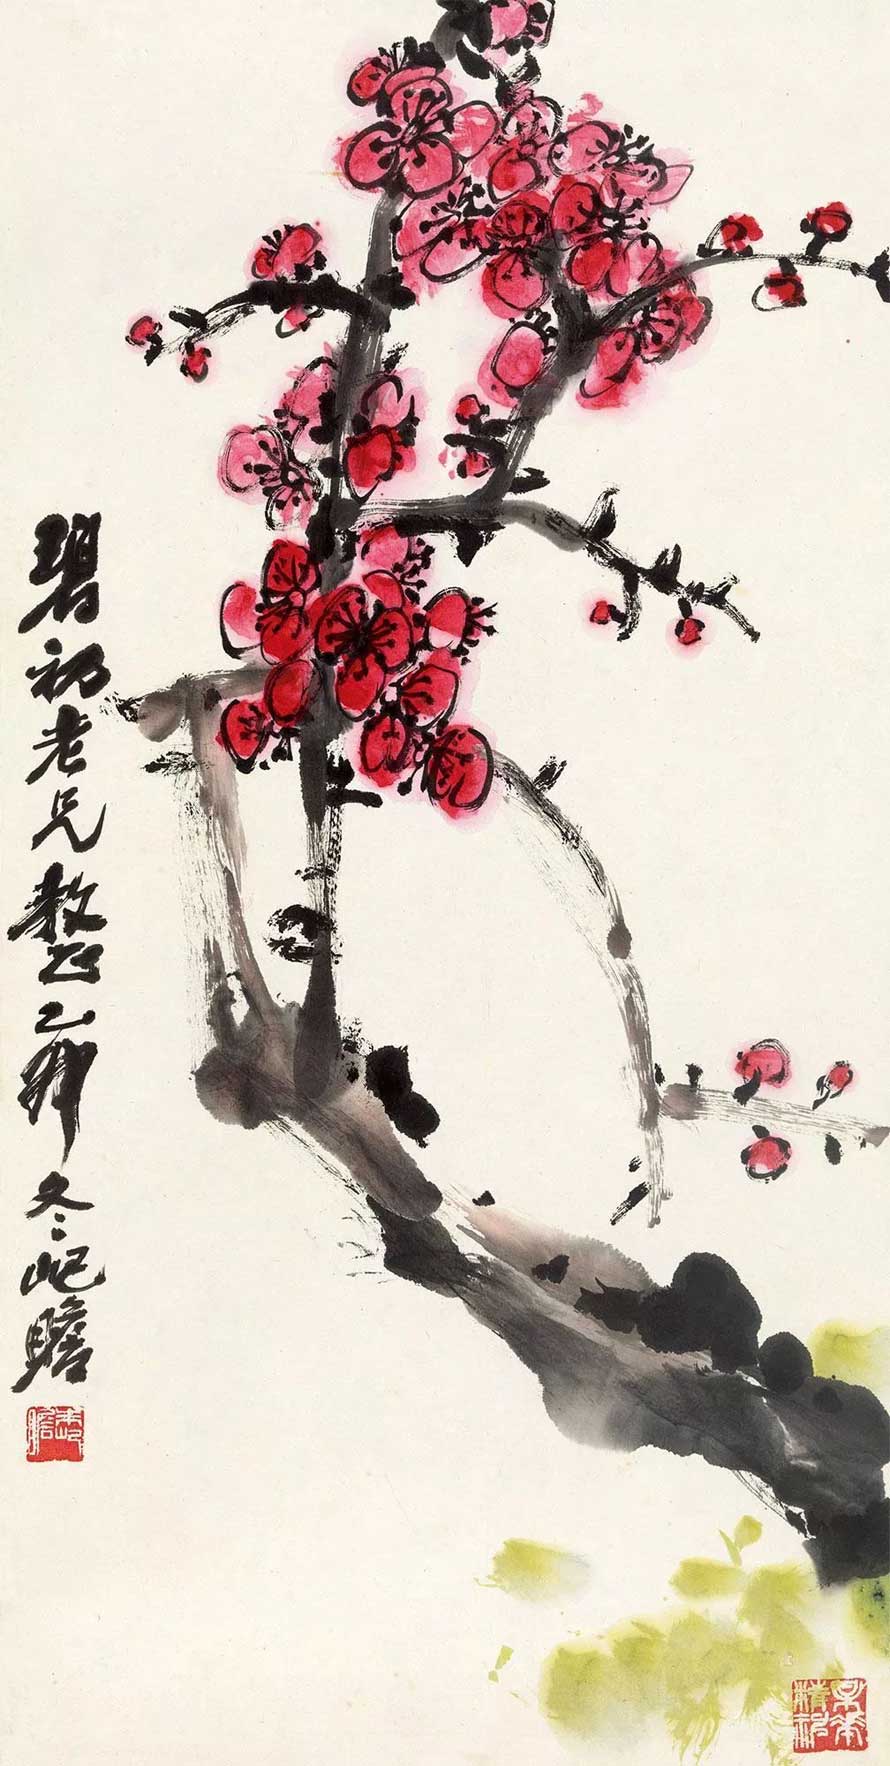 碧初老兄教正乙卯冬屺瞻
朱屺瞻